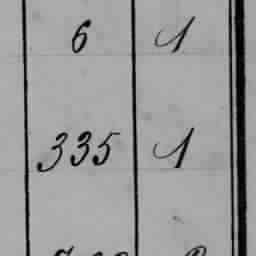 6 1
335 1